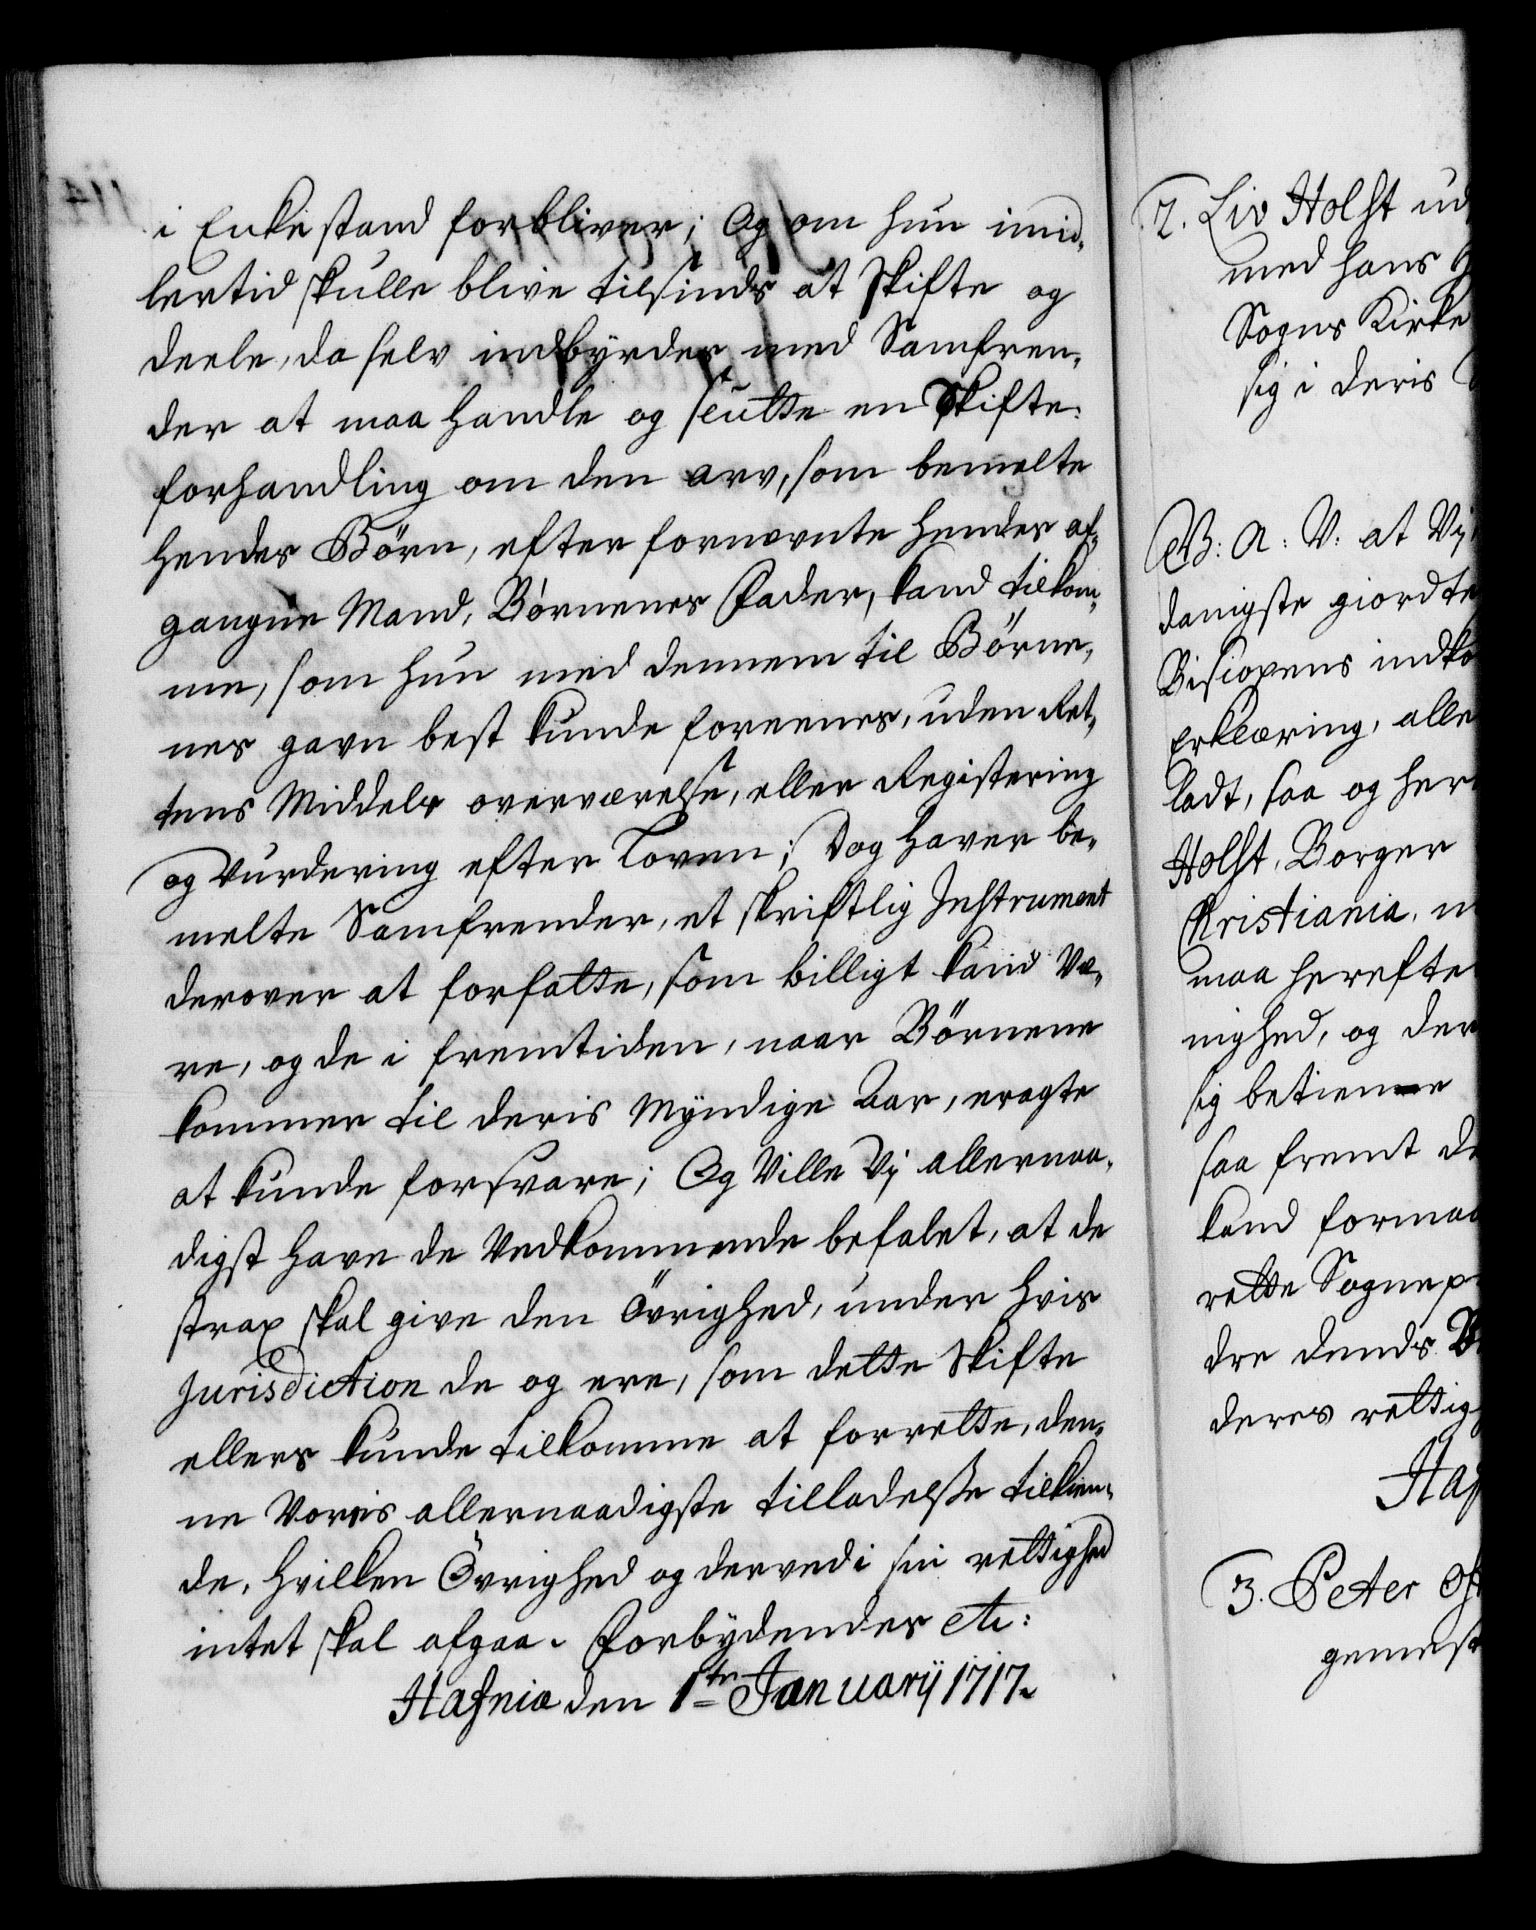 i Enkestand forbliver; Og om hun imid-
lertid skulle blive tilsinds at Skifte og
deele, da selv indbyrdes med Samfren-
der at maa handle og slutte en Skifte-
forhandling om den arv, som bemelte
hendes Børn, efter fornevnte hendes af-
gangne Mand, Børnenes Fader, kand tilkom-
me, som hun med dennem til Børne-
nes gavn best kunde foreenes, uden Ret-
tens Middels overværelse, eller Registering
og Vurdering efter Loven; Dog haver be-
melte Samfrender, et skriftlig Instrument
derover at forfatte, som billigt kand Væ-
re, og de i fremtiden, naar Børnene
kommer til deris Myndige Aar, eragte
at kunde forsvare; Og Ville Vj allernaa-
digst have de Vedkommende befalet, at de
strax skal give den Øvrighed, under hvis
Jurisdiction de og ere, som dette Skifte
ellers kunde tilkomme at forrette, den-
ne Voris allernaadigste tilladelsse tilkien-
de, hvilken Øvrighed og derved i sin rettighed
intet skal afgaa. Forbydendes etc:
Hafnia den 1te January 1717.
2. Liv Holst ud
med hans
Sogns Kirke
sig i deris
G: A: V: at Vj
danigste giordte
Biscopens indko
Erklæring, alle
ladt, saa og her
Holst, Borger
Christiania, m
maa herefte
nighed, og der
sig betienne
saa fremt de
kand formaa
rette Sognep
dre dends B
deres rettig
Haf
3. Peter
gemest